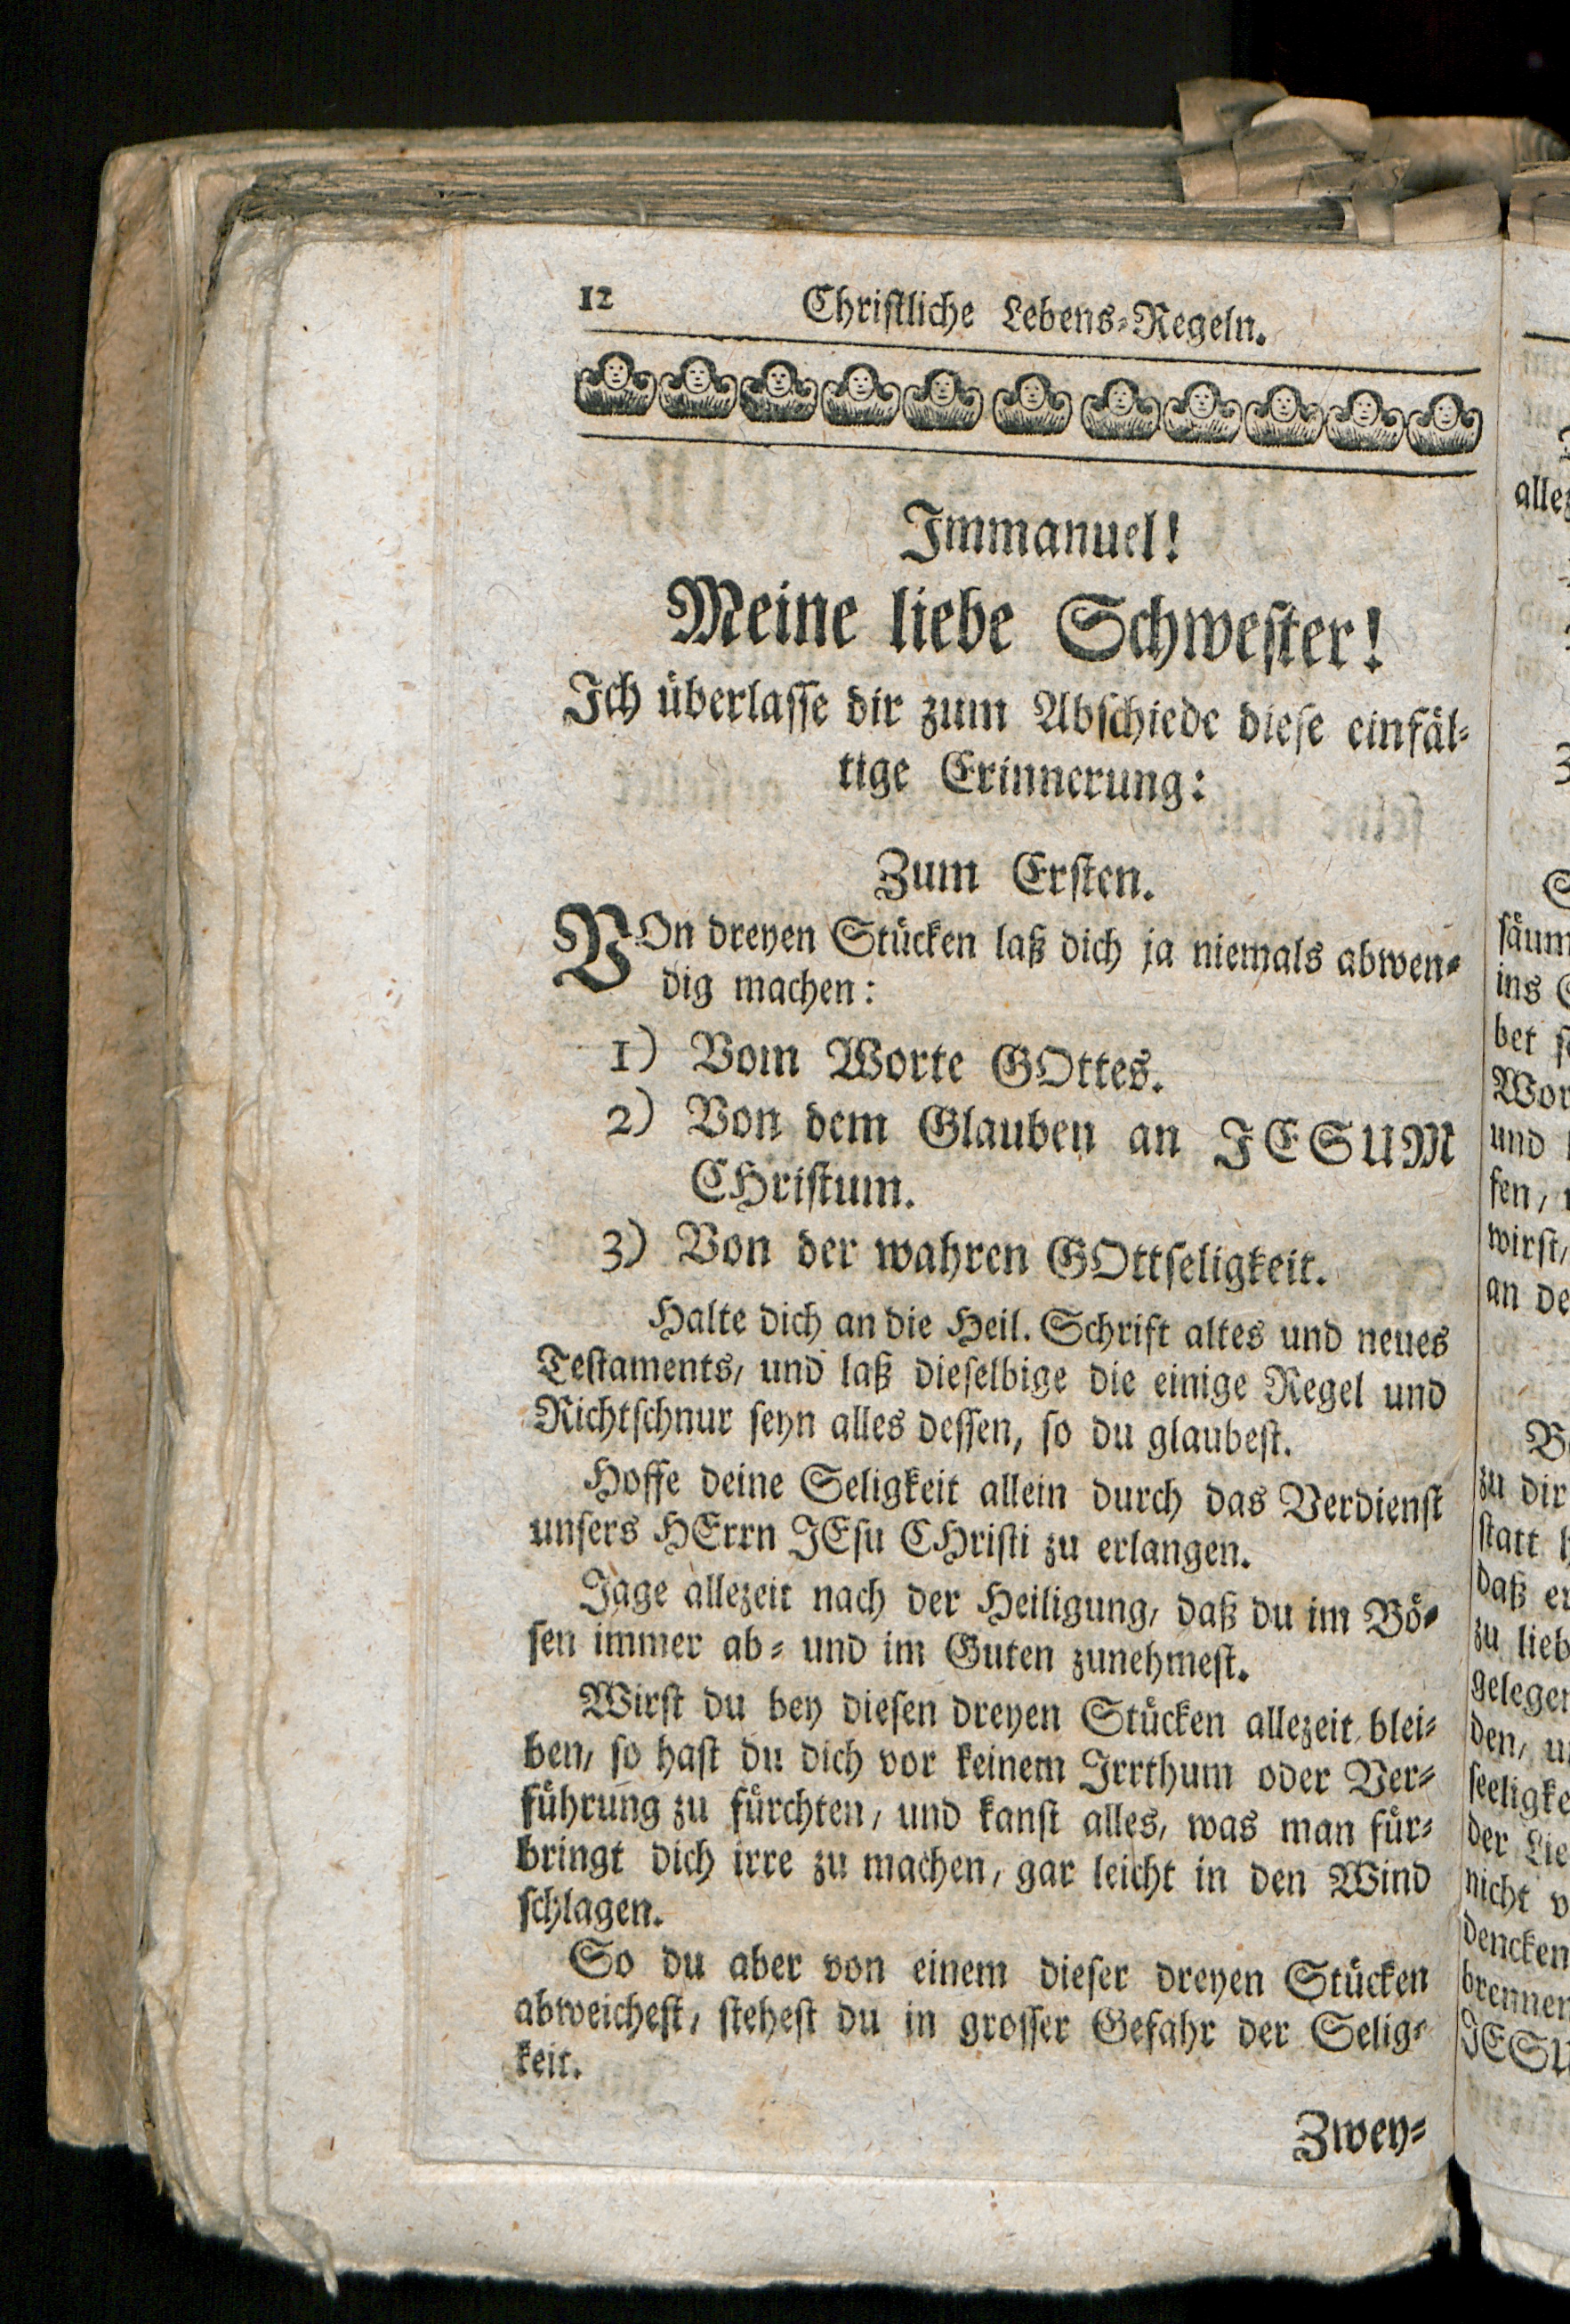 12 Christliche Lebens-Regeln.
Immanuel!
Meine liebe Schwester!
Ich überlasse dir zum Abschiede diese einfäl-
tige Erinnerung:
Zum Ersten.
VOn dreyen Stücken laß dich ja niemals abwen-
dig machen:
1) Vom Worte GOttes.
2) Von dem Glauben an JESUM
CHristum.
3) Von der wahren GOttseligkeit.
Halte dich an die Heil. Schrift altes und neues
Testaments, und laß dieselbige die einige Regel und
Richtschnur seyn alles dessen, so du glaubest.
Hoffe deine Seligkeit allein durch das Verdienst
unsers HErrn JEsu CHristi zu erlangen.
Jage allezeit nach der Heiligung, daß du im Bö-
sen immer ab- und im Guten zunehmest.
Wirst du bey diesen dreyen Stücken allezeit blei-
ben, so hast du dich vor keinem Irrthum oder Ver-
führung zu fürchten, und kanst alles, was man für-
bringt dich irre zu machen, gar leicht in den Wind
schlagen.
So du aber von einem dieser dreyen Stücken
abweichest, stehest du in grosser Gefahr der Selig-
keit.
Zwey-
säum
ins
bet
Wor
und
ken,
wirst,
an de
zu dir
statt
daß er
zu lieb
gelegen
den, u
seeligke
der Lie
nicht v
dencken
brennen
JESU